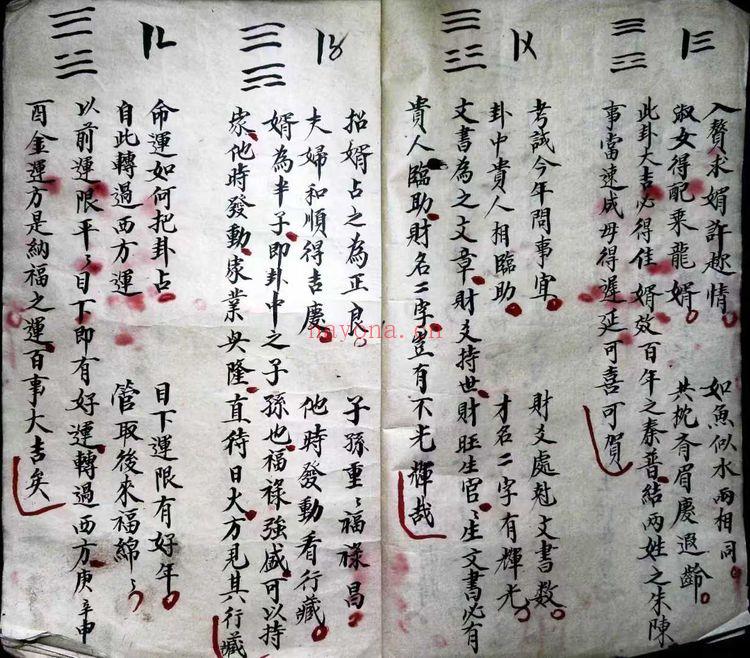 〡三
入贅求婿許趂情 如魚似水兩相同
淑女得配乘龍婿 共枕齊眉慶遐齡
此卦大吉必得佳婿效百年之秦普結兩姓之朱陳
事當速成毋得遲延可喜可賀
〡〤
考試今年問事宜 財爻處尅文書数
卦中貴人相臨助 才名二字有輝光
文書為之文章財爻持世財旺生官〻生文書必有
貴人臨助財名二字豈有不光輝哉
〡〥
招婿占之為正良 子孫重〻福祿昌
夫婦和順得吉慶 他時發動看行藏
婿為半子即卦中之子孫也福祿強盛可以持
家他時發動家業興隆直待日大方見其行藏
〡〦
命運如何把卦占 目下運限有好年
自此轉過西方運 管取後來福綿〻
以前運限平〻目下即有好運轉過西方庚辛申
酉金運方是納福之運百事大吉矣
nayona.cn